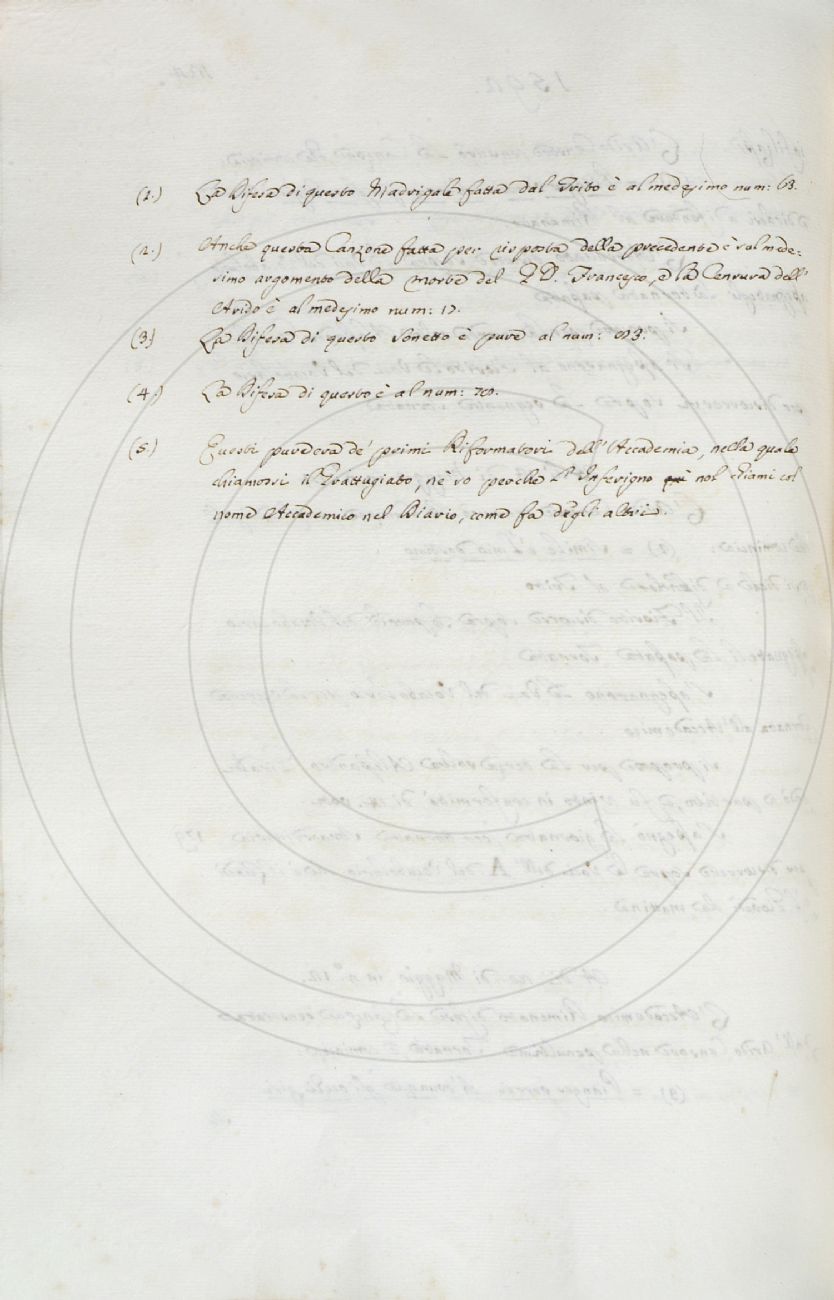 (1.) La Difesa di questo Madrigale fatta dal Trito è al medesimo num: 63.
(2.) Anche questa Canzone fatta per risposta della precedente è sul mede:
simo argomento della morte del G. D. Francesco, e la Censura dell'
Arido è al medesimo num:
(3.) La Difesa di questo Sonetto è pure al num:
(4.) La Difesa di questo è al num:
(5.) Questi pure era de' primi Riformatori dell'Accademia, nella quale
chiamossi il Grattugiato, nè so perche l'Inferigno nol chiami col
nome Accademico nel Diario, come fa degli altri.